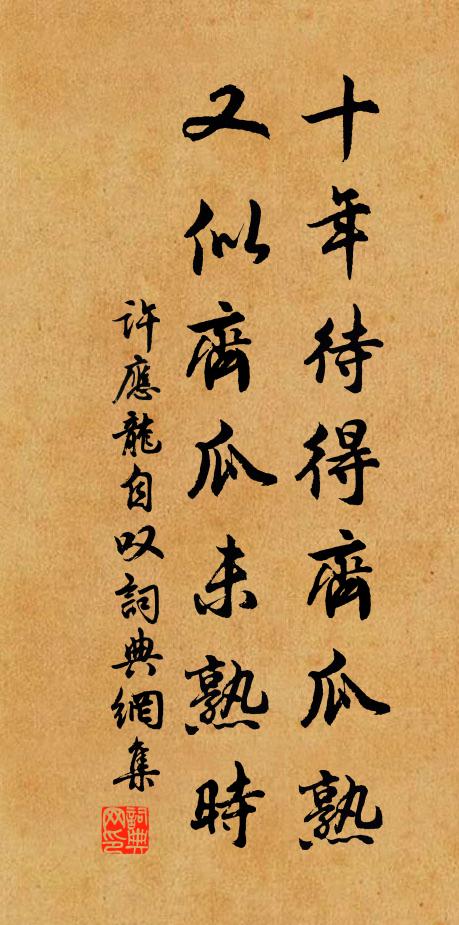 十年待得齊瓜熟
又似齊瓜未熟時
許應龍自叹詞典網集
詞典网印